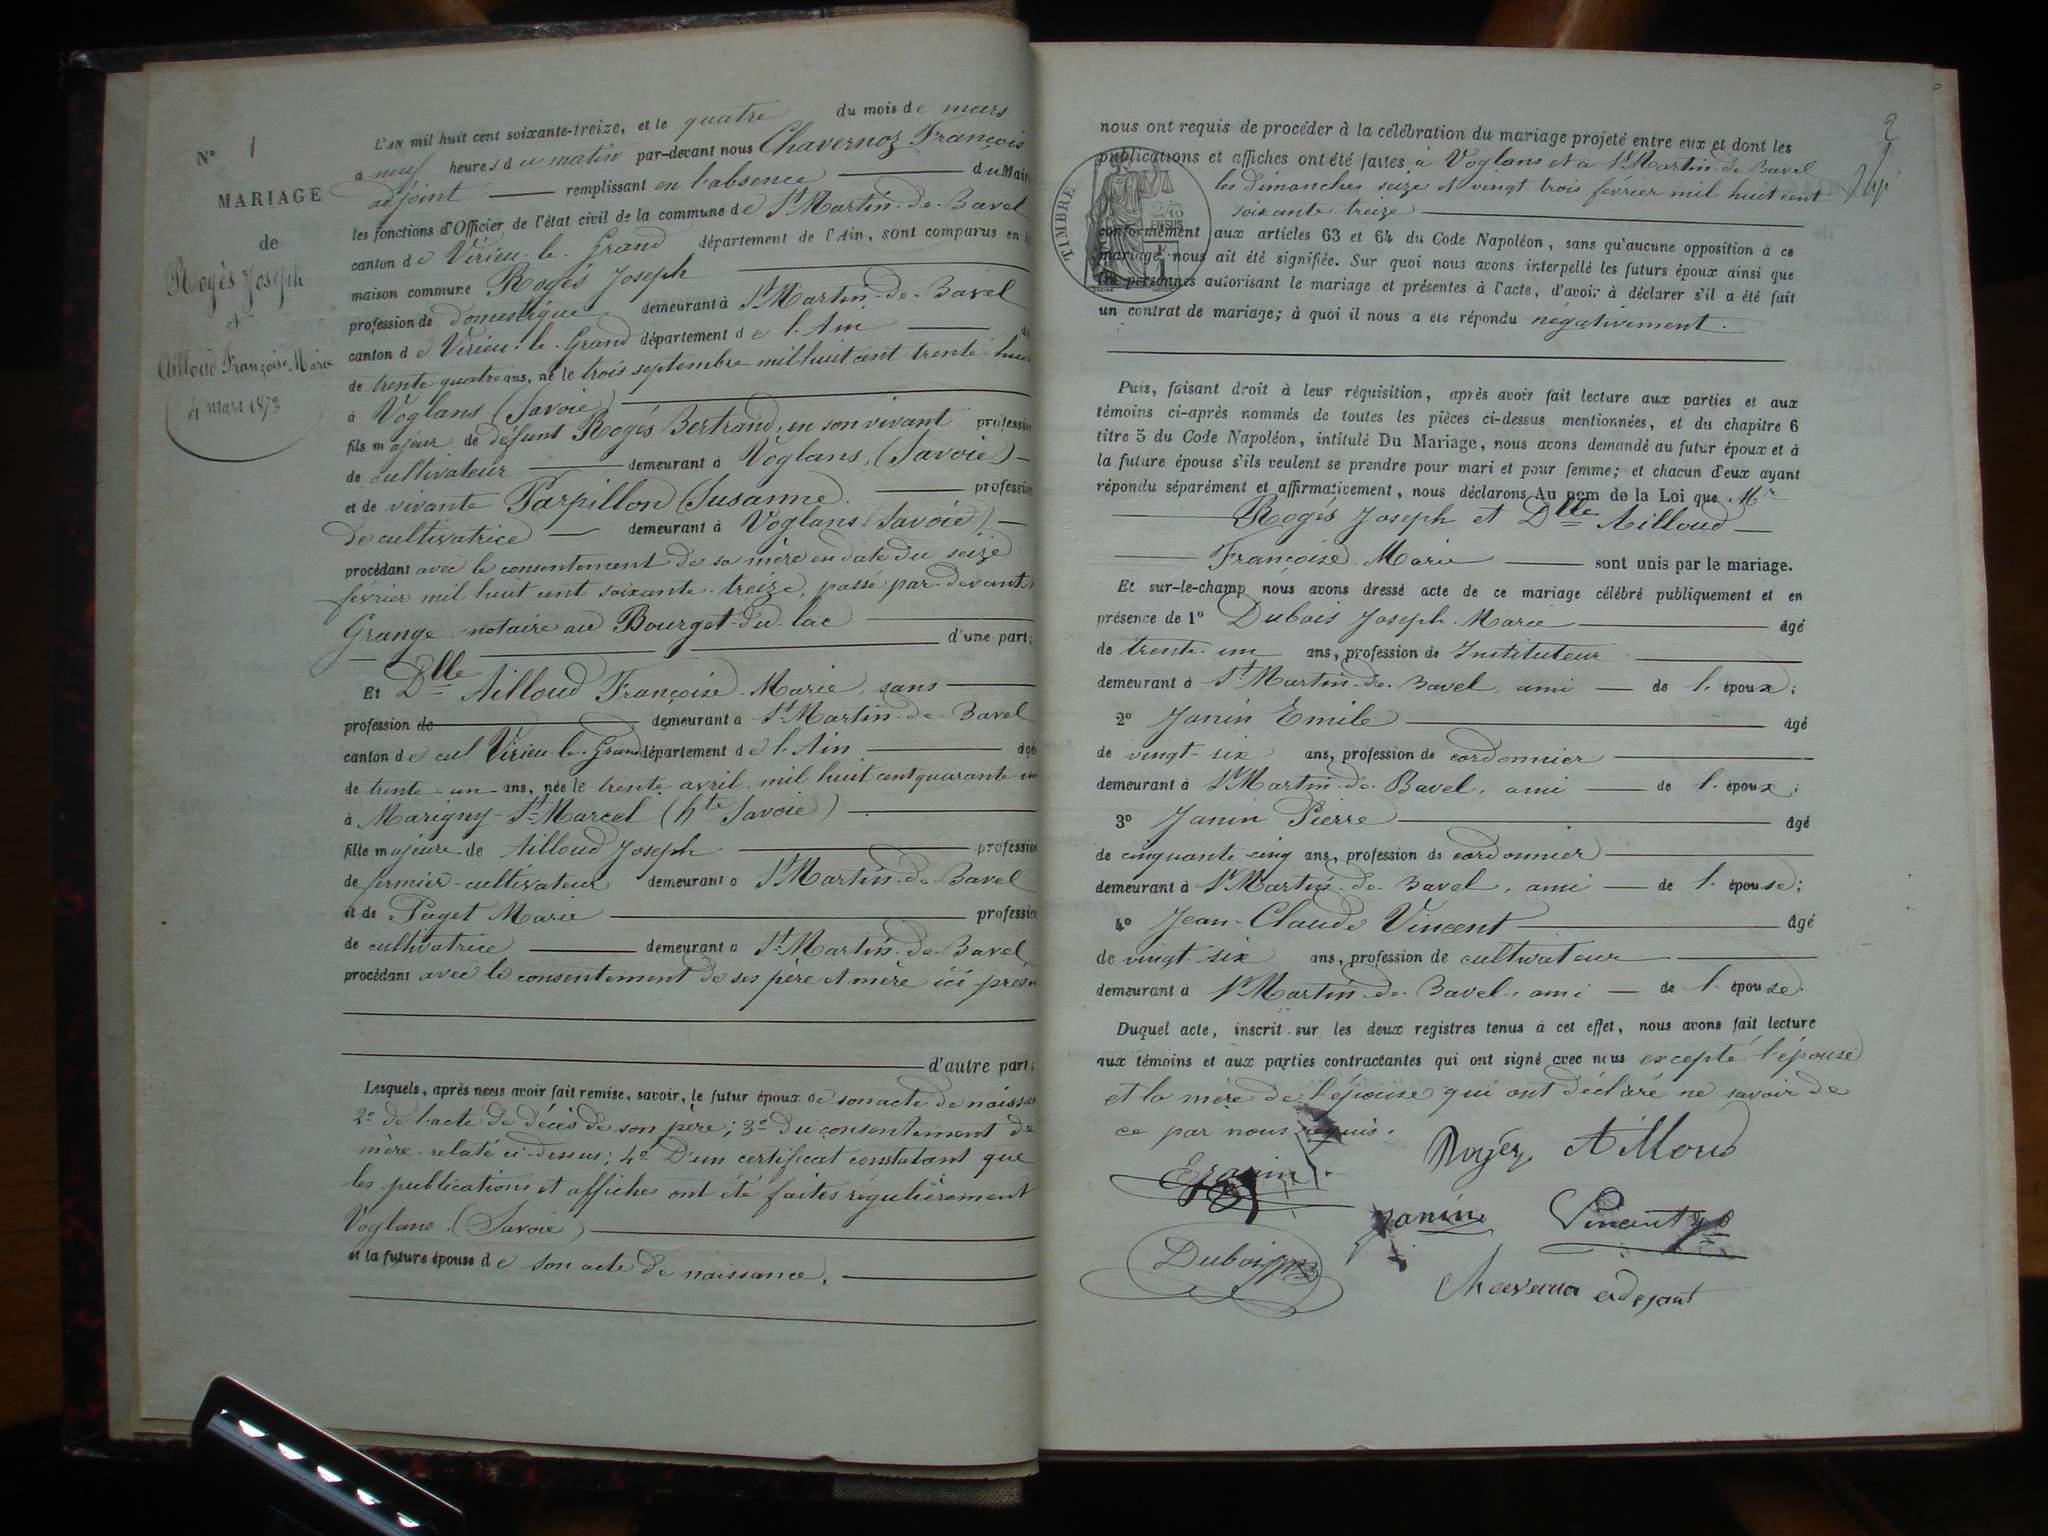 N° 1
MARIAGE
de
Rogès Joseph
et
Ailloud Françoise Marie
4 mars 1873
L'AN mil huit cent soixante-treize, et le quatre du mois de mars
à neuf heures du matin par-devant nous Chavernoz François
adjoint remplissant en l'absence du Mair
les fonctions d'Officier de l'état civil de la commune de St Martin-de-Bavel
canton de Virieu-le-Grand département de l'Ain, sont comparus en l
maison commune Rogés Joseph
profession de domestique demeurant à St Martin-de-Bavel
canton de Virieu-le-Grand département de l'Ain
de trente quatre ans, né le trois septembre mil huit cent trente-huit
à Voglans (Savoie)
fils majeur de défunt Rogés Bertrand, en son vivant professio
de cultivateur demeurant à Voglans, (Savoie)
et de vivante Parpillon (Susanne) professio
de cultivatrice demeurant à Voglans (Savoie)
procédant avec le consentement de sa mère en date du seize
février mil huit cent soixante-treize, passé par-devant
Grange notaire au Bourget-du-lac
d'une part;
Et Dlle Ailloud Françoise-Marie, sans
profession de demeurant à St Martin-de-Bavel
canton de Virieu-le-Grand département de l'Ain âgé
de trente-un ans, née le trente avril mil huit cent quarante-un
à Marigny-St-Marcel (hte Savoie)
fille majeure de Ailloud Joseph professio
de fermier-cultivateur demeurant à St Martin-de-Bavel
et de Paget Marie professio
de cultivatrice demeurant à St Martin-de-Bavel
procédant avec le consentement de ses père et mère ici prés
d'autre part;
Lesquels, après nous avoir fait remise, savoir, le futur époux de son acte de naissan
2° de l'acte de décès de son père; 3° du consentement de
mère relaté ci-dessus; 4° D'un certificat constatant que
les publications et affiches ont été faites régulièrement
Voglans (Savoie)
et la future épouse de son acte de naissance.
2
nous ont requis de procéder à la célébration du mariage projeté entre eux et dont les
publications et affiches ont été faites à Voglans et à St Martin-de-Bavel
les dimanches seize et vingt trois février mil huit cent
soixante treize
TIMBRE
2/10
EN SUS
F
1
conformément aux articles 63 et 64 du Code Napoléon, sans qu'aucune opposition à ce
mariage nous ait été signifiée. Sur quoi nous avons interpellé les futurs époux ainsi que
les personnes autorisant le mariage et présentes à l'acte, d'avoir à déclarer s'il a été fait
un contrat de mariage; à quoi il nous a été répondu négativement.
Puis, faisant droit à leur réquisition, après avoir fait lecture aux parties et aux
témoins ci-après nommés de toutes les pièces ci-dessus mentionnées, et du chapitre 6
titre 5 du Code Napoléon, intitulé Du Mariage, nous avons demandé au futur époux et à
la future épouse s'ils veulent se prendre pour mari et pour femme; et chacun d'eux ayant
répondu séparément et affirmativement, nous déclarons Au nom de la Loi que Mr
Rogés Joseph et Dlle Ailloud
Françoise Marie sont unis par le mariage.
Et sur-le-champ nous avons dressé acte de ce mariage célébré publiquement et en
présence de 1° Dubois Joseph-Marie âgé
de trente-un ans, profession de Instituteur
demeurant à St Martin-de-Bavel, ami de l'époux;
2° Janin Emile âgé
de vingt-six ans, profession de cordonnier
demeurant à St Martin-de-Bavel, ami de l'époux;
3° Janin Pierre âgé
de cinquante cinq ans, profession de cordonnier
demeurant à St Martin-de-Bavel, ami de l'épouse;
4° Jean-Claude Vincent âgé
de vingt-six ans, profession de cultivateur
demeurant à St Martin-de-Bavel, ami de l'épouse.
Duquel acte, inscrit sur les deux registres tenus à cet effet, nous avons fait lecture
aux témoins et aux parties contractantes qui ont signé avec nous excepté l'épouse
et la mère de l'épouse qui ont déclaré ne savoir de
ce par nous requis.
Rogéz Ailloud
E Janin
Janin Vincent
Dubois
Chavernoz adejant